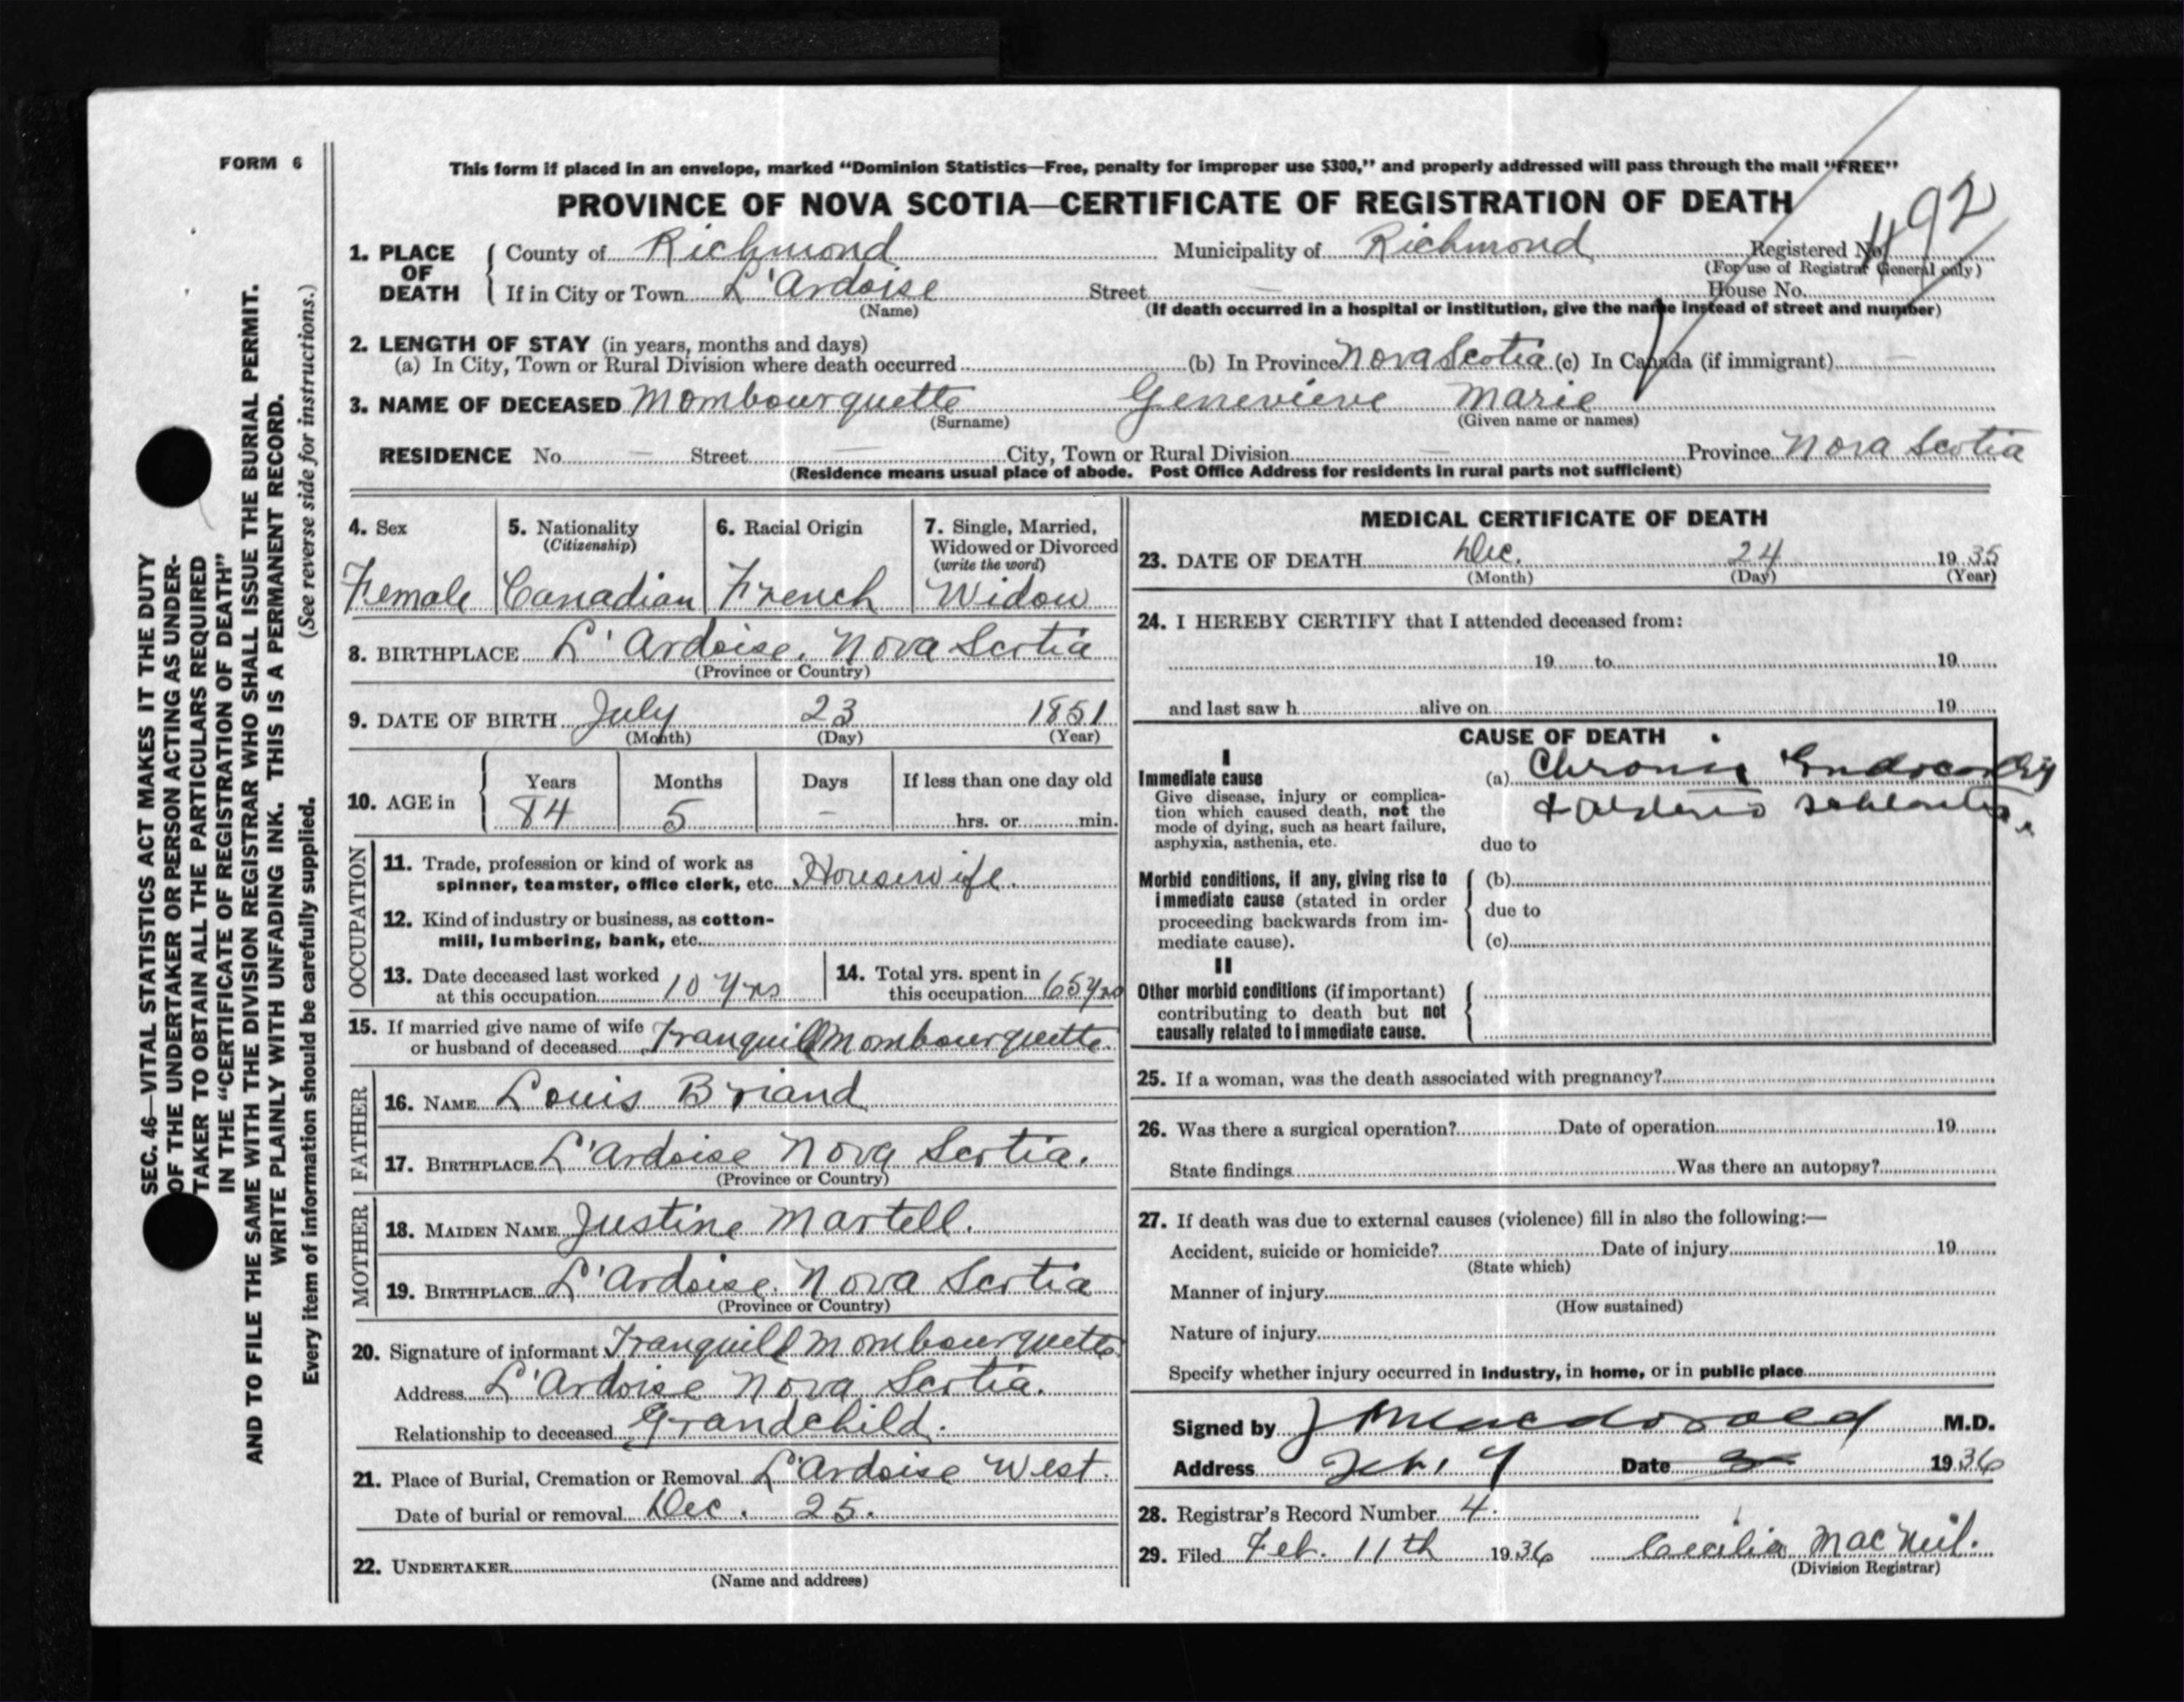 FORM 6
This form if placed in an envelope, marked “Dominion Statistics—Free, penalty for improper use $300,” and properly addressed will pass through the mail “FREE”
PROVINCE OF NOVA SCOTIA—CERTIFICATE OF REGISTRATION OF DEATH
1. PLACE OF DEATH { County of Richmond Municipality of Richmond Registered No.
(For use of Registrar General only)
If in City or Town L'Ardoise Street — House No.
(Name) (If death occurred in a hospital or institution, give the name instead of street and number)
2. LENGTH OF STAY (in years, months and days)
(a) In City, Town or Rural Division where death occurred (b) In Province Nova Scotia (c) In Canada (if immigrant) —
3. NAME OF DECEASED Mombourquette Genevieve Marie
(Surname) (Given name or names)
RESIDENCE No. — Street — City, Town or Rural Division — Province Nova Scotia
(Residence means usual place of abode. Post Office Address for residents in rural parts not sufficient)
4. Sex 5. Nationality 6. Racial Origin 7. Single, Married,
(Citizenship) Widowed or Divorced
(write the word)
Female Canadian French Widow
8. BIRTHPLACE L'Ardoise, Nova Scotia
(Province or Country)
9. DATE OF BIRTH July 23 1851
(Month) (Day) (Year)
10. AGE in { Years Months Days If less than one day old
84 5 — hrs. or min.
OCCUPATION
11. Trade, profession or kind of work as
spinner, teamster, office clerk, etc. Housewife.
12. Kind of industry or business, as cotton-
mill, lumbering, bank, etc.
13. Date deceased last worked
at this occupation 10 yrs
14. Total yrs. spent in
this occupation 65 yrs
15. If married give name of wife
or husband of deceased Tranquill Mombourquette.
FATHER
16. NAME Louis Briand
17. BIRTHPLACE L'Ardoise Nova Scotia.
(Province or Country)
MOTHER
18. MAIDEN NAME Justine Martell.
19. BIRTHPLACE L'Ardoise. Nova Scotia
(Province or Country)
20. Signature of informant Tranquill Mombourquette.
Address L'Ardoise Nova Scotia.
Relationship to deceased Grandchild.
21. Place of Burial, Cremation or Removal L'Ardoise West.
Date of burial or removal Dec. 25.
22. UNDERTAKER
(Name and address)
MEDICAL CERTIFICATE OF DEATH
23. DATE OF DEATH Dec. 24 1935
(Month) (Day) (Year)
24. I HEREBY CERTIFY that I attended deceased from:
19 to 19
and last saw h alive on 19
CAUSE OF DEATH
I
Immediate cause (a) Chronic
Give disease, injury or complica-
tion which caused death, not the
mode of dying, such as heart failure,
asphyxia, asthenia, etc. due to
Morbid conditions, if any, giving rise to { (b)
immediate cause (stated in order
proceeding backwards from im- due to
mediate cause). (c)
II
Other morbid conditions (if important)
contributing to death but not
causally related to immediate cause.
25. If a woman, was the death associated with pregnancy?
26. Was there a surgical operation? Date of operation 19
State findings Was there an autopsy?
27. If death was due to external causes (violence) fill in also the following:—
Accident, suicide or homicide? Date of injury 19
(State which)
Manner of injury
(How sustained)
Nature of injury
Specify whether injury occurred in industry, in home, or in public place
Signed by M.D.
Address Date 1936
28. Registrar's Record Number 4.
29. Filed Feb. 11th 1936 Cecilia MacNeil.
(Division Registrar)
SEC. 46—VITAL STATISTICS ACT MAKES IT THE DUTY
OF THE UNDERTAKER OR PERSON ACTING AS UNDER-
TAKER TO OBTAIN ALL THE PARTICULARS REQUIRED
IN THE “CERTIFICATE OF REGISTRATION OF DEATH”
AND TO FILE THE SAME WITH THE DIVISION REGISTRAR WHO SHALL ISSUE THE BURIAL PERMIT.
WRITE PLAINLY WITH UNFADING INK. THIS IS A PERMANENT RECORD.
Every item of information should be carefully supplied. (See reverse side for instructions.)